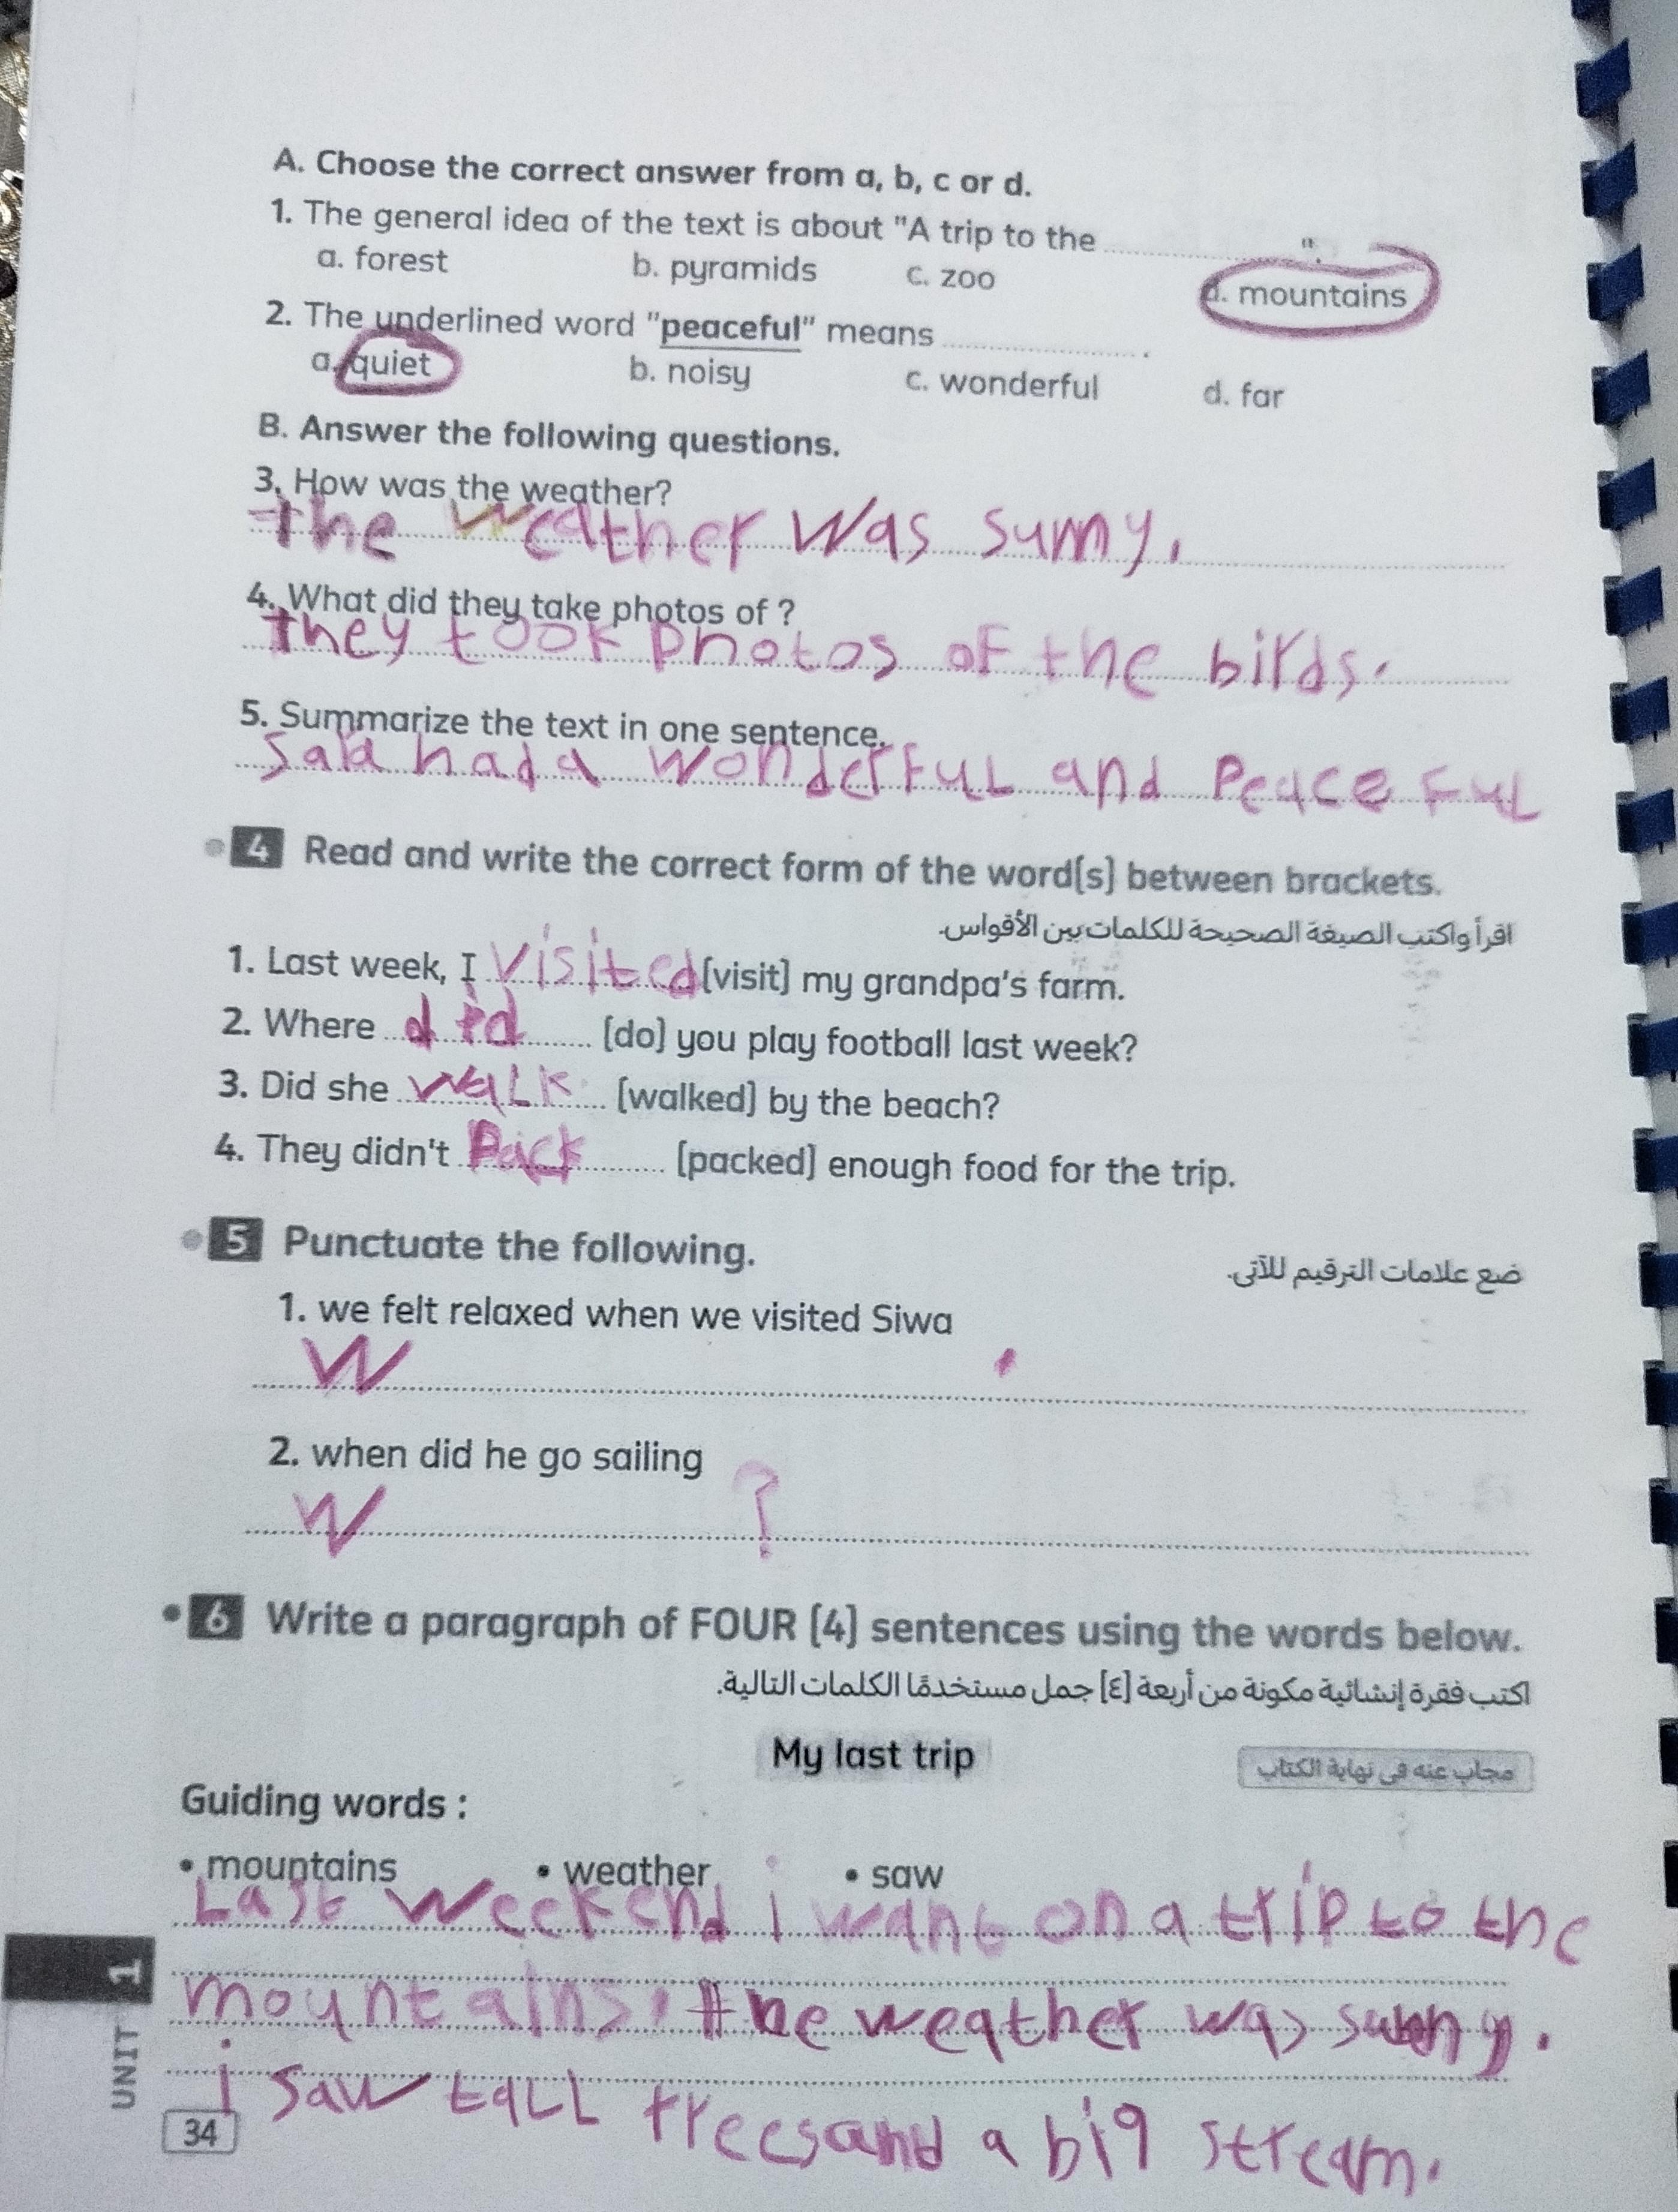 A. Choose the correct answer from a, b, c or d.
1. The general idea of the text is about "A trip to the ............ ".
a. forest b. pyramids c. zoo d. mountains
2. The underlined word "peaceful" means ............ .
a. quiet b. noisy c. wonderful d. far
B. Answer the following questions.
3. How was the weather?
The weather was sunny.
4. What did they take photos of ?
They took photos of the birds.
5. Summarize the text in one sentence.
had a wonderful and Peaceful
4 Read and write the correct form of the word(s) between brackets.
اقرأ واكتب الصيغة الصحيحة للكلمات بين الأقواس.
1. Last week, I visited (visit) my grandpa's farm.
2. Where did (do) you play football last week?
3. Did she walk (walked) by the beach?
4. They didn't Pack (packed) enough food for the trip.
5 Punctuate the following.
ضع علامات الترقيم للآتى.
1. we felt relaxed when we visited Siwa
W .
2. when did he go sailing
W ?
6 Write a paragraph of FOUR (4) sentences using the words below.
اكتب فقرة إنشائية مكونة من أربعة [٤] جمل مستخدمًا الكلمات التالية.
My last trip
مجاب عنه فى نهاية الكتاب
Guiding words :
• mountains • weather • saw
Last weekend i want on a trip to the
mountains. the weather was sunny.
i saw tall trees and a big stream.
UNIT 1
34